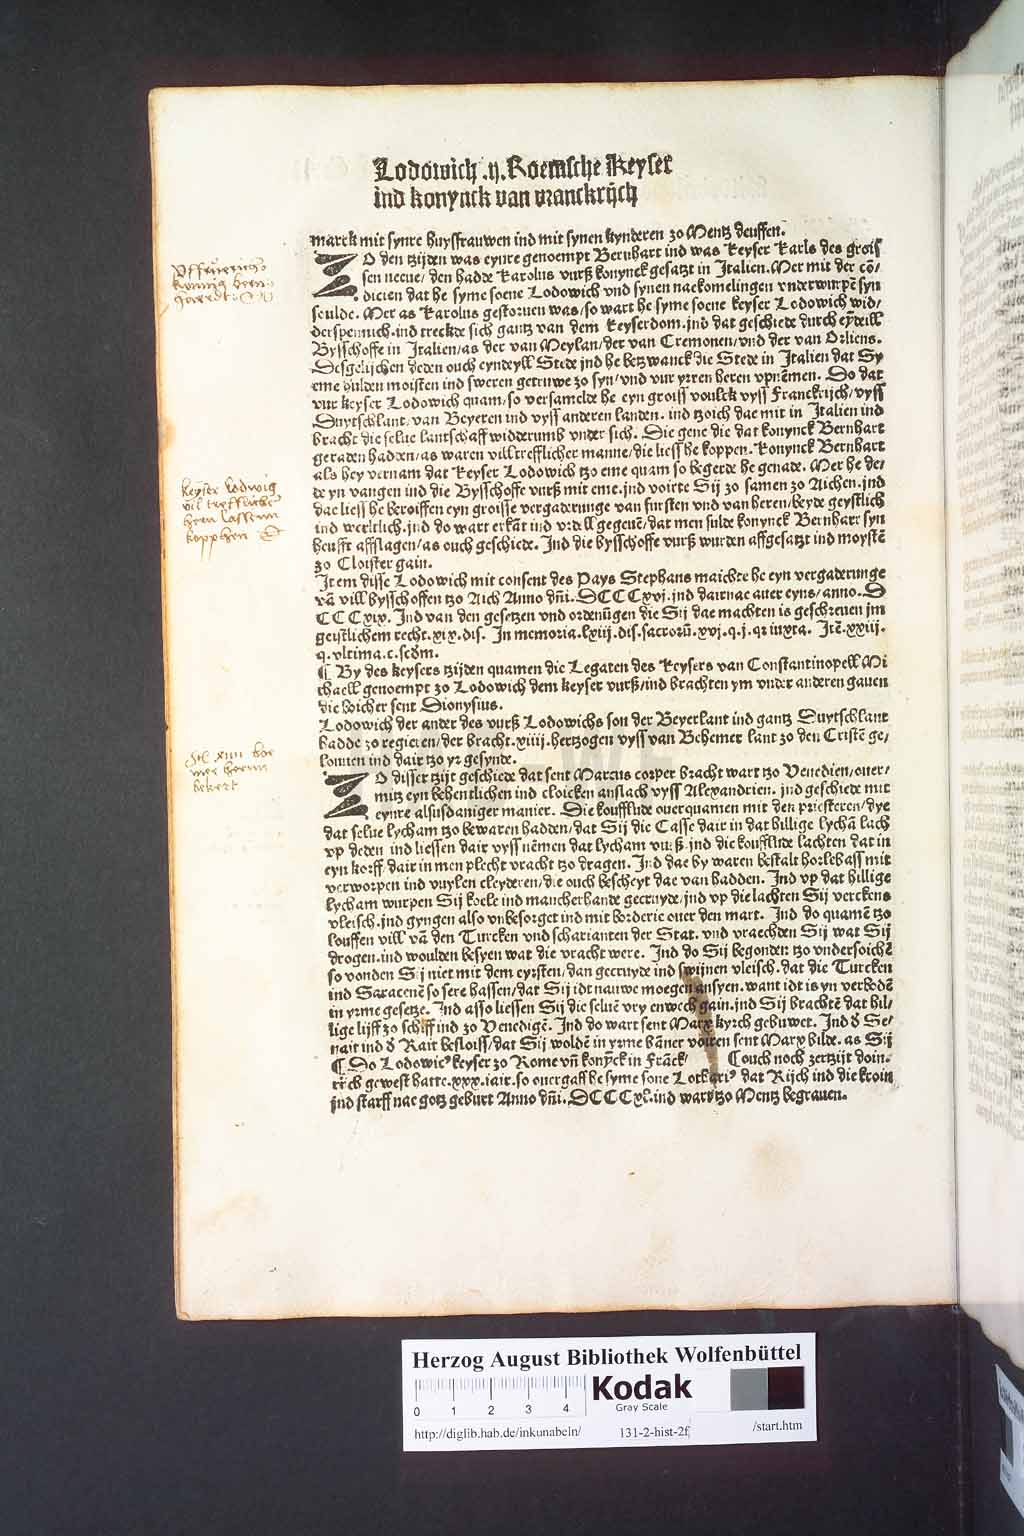 Lodowich .ij. Roemsche Keyser
ind konynck van vranckrijch
marck mit synre huysfrauwen ind mit synen kynderen zo Mentz deuffen.
ZO den tzijden was eynre genoempt Bernhart ind was keyser Karls des groiß
sen neeue/den hadde Karolus vurß konynck gesatzt in Italien. Mer mit der cō-
dicien dat he syme soene Lodowich vnd synen nackomelingen vnderwurpē syn
seulde. Mer as Karolus gestoruen was/so wart he syme soene keyser Lodowich wid/
derspennich. ind treckde sich gantz van dem keyserdom. jnd dat geschiede durch eyndeill
Bysschoffe in Italien/as der van Meylan/der van Cremonen/vnd der van Orliens.
Desgelijchen deden ouch eyndeyll Stede jnd he betzwanck die Stede in Italien dat Sy
eme hulden moisten ind sweren getruwe zo syn/vnd vur yrren heren vpnēmen. Do dat
vur keyser Lodowich quam/so versamelde he eyn groiss voulck vyss Franckrijch/vyss
Duytschlant/van Beyeren ind vyss anderen landen. ind tzoich dae mit in Italien ind
bracht die selue lantschaff widderumb vnder sich. Die gene die dat konynck Bernhart
geraden hadden/as waren vill trefflicher manne/die liess he koppen. Konynck Bernhart
als hey vernam dat keyser Lodowich tzo eme quam so begerde he genade. Mer he de/
de yn vangen ind die Bysschoffe vurß mit eme. jnd voirte Sij zo samen zo Aichen. jnd
dae liess he beroiffen eyn groisse vergaderunge van fursten vnd van heren/beyde geystlich
ind werltlich. jnd do wart erkāt ind vrdell gegeuē/dat men sulde konynck Bernhart syn
heufft affslagen/as ouch geschiede. Ind die bysschoffe vurß wurden affgesatzt ind moystē
zo Cloister gain.
Item disse Lodowich mit consent des Pays Stephans maichte he eyn vergaderunge
vā vill bysschoffen tzo Aich Anno dn̄i. DCCCxvj. ind dairnae auer eyns/anno. D
CCCxix. Ind van den gesetzen vnd ordenūgen die Sij dae machten is geschreuen jm
geistlichem recht. xix. dis. In memoria. lxiij. dis. sacrorū. xvj. q. j. qr iuxta. Itē. xxiij.
q. vltima. c. scdm.
¶ By des keysers tzijden quamen die Legaten des keysers van Constantinopell Mi
chaell genoempt zo Lodowich dem keyser vurß/ind brachten ym vnder anderen gauen
die boicher sent Dionysius.
Lodowich der ander des vurß Lodowichs son der Beyerlant ind gantz Duytschlant
hadde zo regieren/der bracht. xiiij. hertzogen vyss van Behemer lant zo den Cristē ge/
louuen ind dair tzo yr gesynde.
ZO disser tzijt geschiede dat sent Marcus corper bracht wart tzo Venedien/ouer/
mitz eyn behentlichen ind cloicken anslach vyss Alexandrien. ind geschiede mit
eynre alsusdaniger manier. Die koufflude ouerquamen mit den priesteren/dye
dat selue lycham tzo bewaren hadden/dat Sij die Casse dair in dat hillige lychā lach
vp deden ind liessen dair vyss nēmen dat lycham vurß. jnd die koufflude lachten dat in
eyn korff/dair in men plecht vracht tzo dragen. Ind dae by waren bestalt horlebass mit
verworpen ind vuylen cleyderen/die ouch bescheyt dae van hadden. Ind vp dat hillige
lycham wurpen Sij koele ind mancherhande gecruyde/jnd vp die lachten Sij verckens
vleisch. jnd gyngen also vnbesorget ind mit korderie ouer den mart. Ind do quamē tzo
louffen vill vā den Turcken vnd scharianten der Stat. vnd vraechden Sij wat Sij
drogen. ind woulden besyen wat die vracht were. Ind do Sij begonden tzo vndersoichē
so vonden Sij niet mit dem eyrsten/dan gecruyde ind swijnen vleisch. dat die Turcken
ind Saracenē so sere hassen/dat Sij idt nauwe moegen ansyen. want idt is yn verbodē
in yrme gesetze. Ind asso liessen Sij die seluē vry enwech gain. jnd Sij brachtē dat hil/
lige lijff zo schiff ind zo Venedigē. Ind do wart sent Marx kyrch gebuwet. Ind d Se/
nait ind d Rait besloiss/dat Sij woldē in yrme bāner voiren sent Marx bilde. as Sij
¶ Do Lodowic⁹ keyser zo Rome vn̄ konȳck in Frāck/ ⸿ ouch noch zertzijt doin.
rijch gewest hatte. xxx. iair. so ouergaff he syme sone Lothari⁹ dat Rijch ind die kroin
jnd starff nae gotz geburt Anno dn̄i. DCCCxl. ind wart tzo Mentz begrauen.
keyser lodwig
vil trefflicher
hern lassenn
koppen
bekert
Herzog August Bibliothek Wolfenbüttel
0 1 2 3 4
Kodak
Gray Scale
http://diglib.hab.de/inkunabeln/ 131-2-hist-2f/ /start.htm